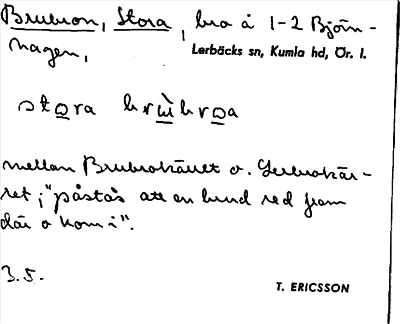 Brubron, Stora, bro å 1-2 Björn-
hagen,
Lerbäcks sn, Kumla hd, Ör. l.
stora
mellan Brubrokärret o.
ret; "påstås att en hund red fram
där o kom i".
3.5.
T. ERICSSON